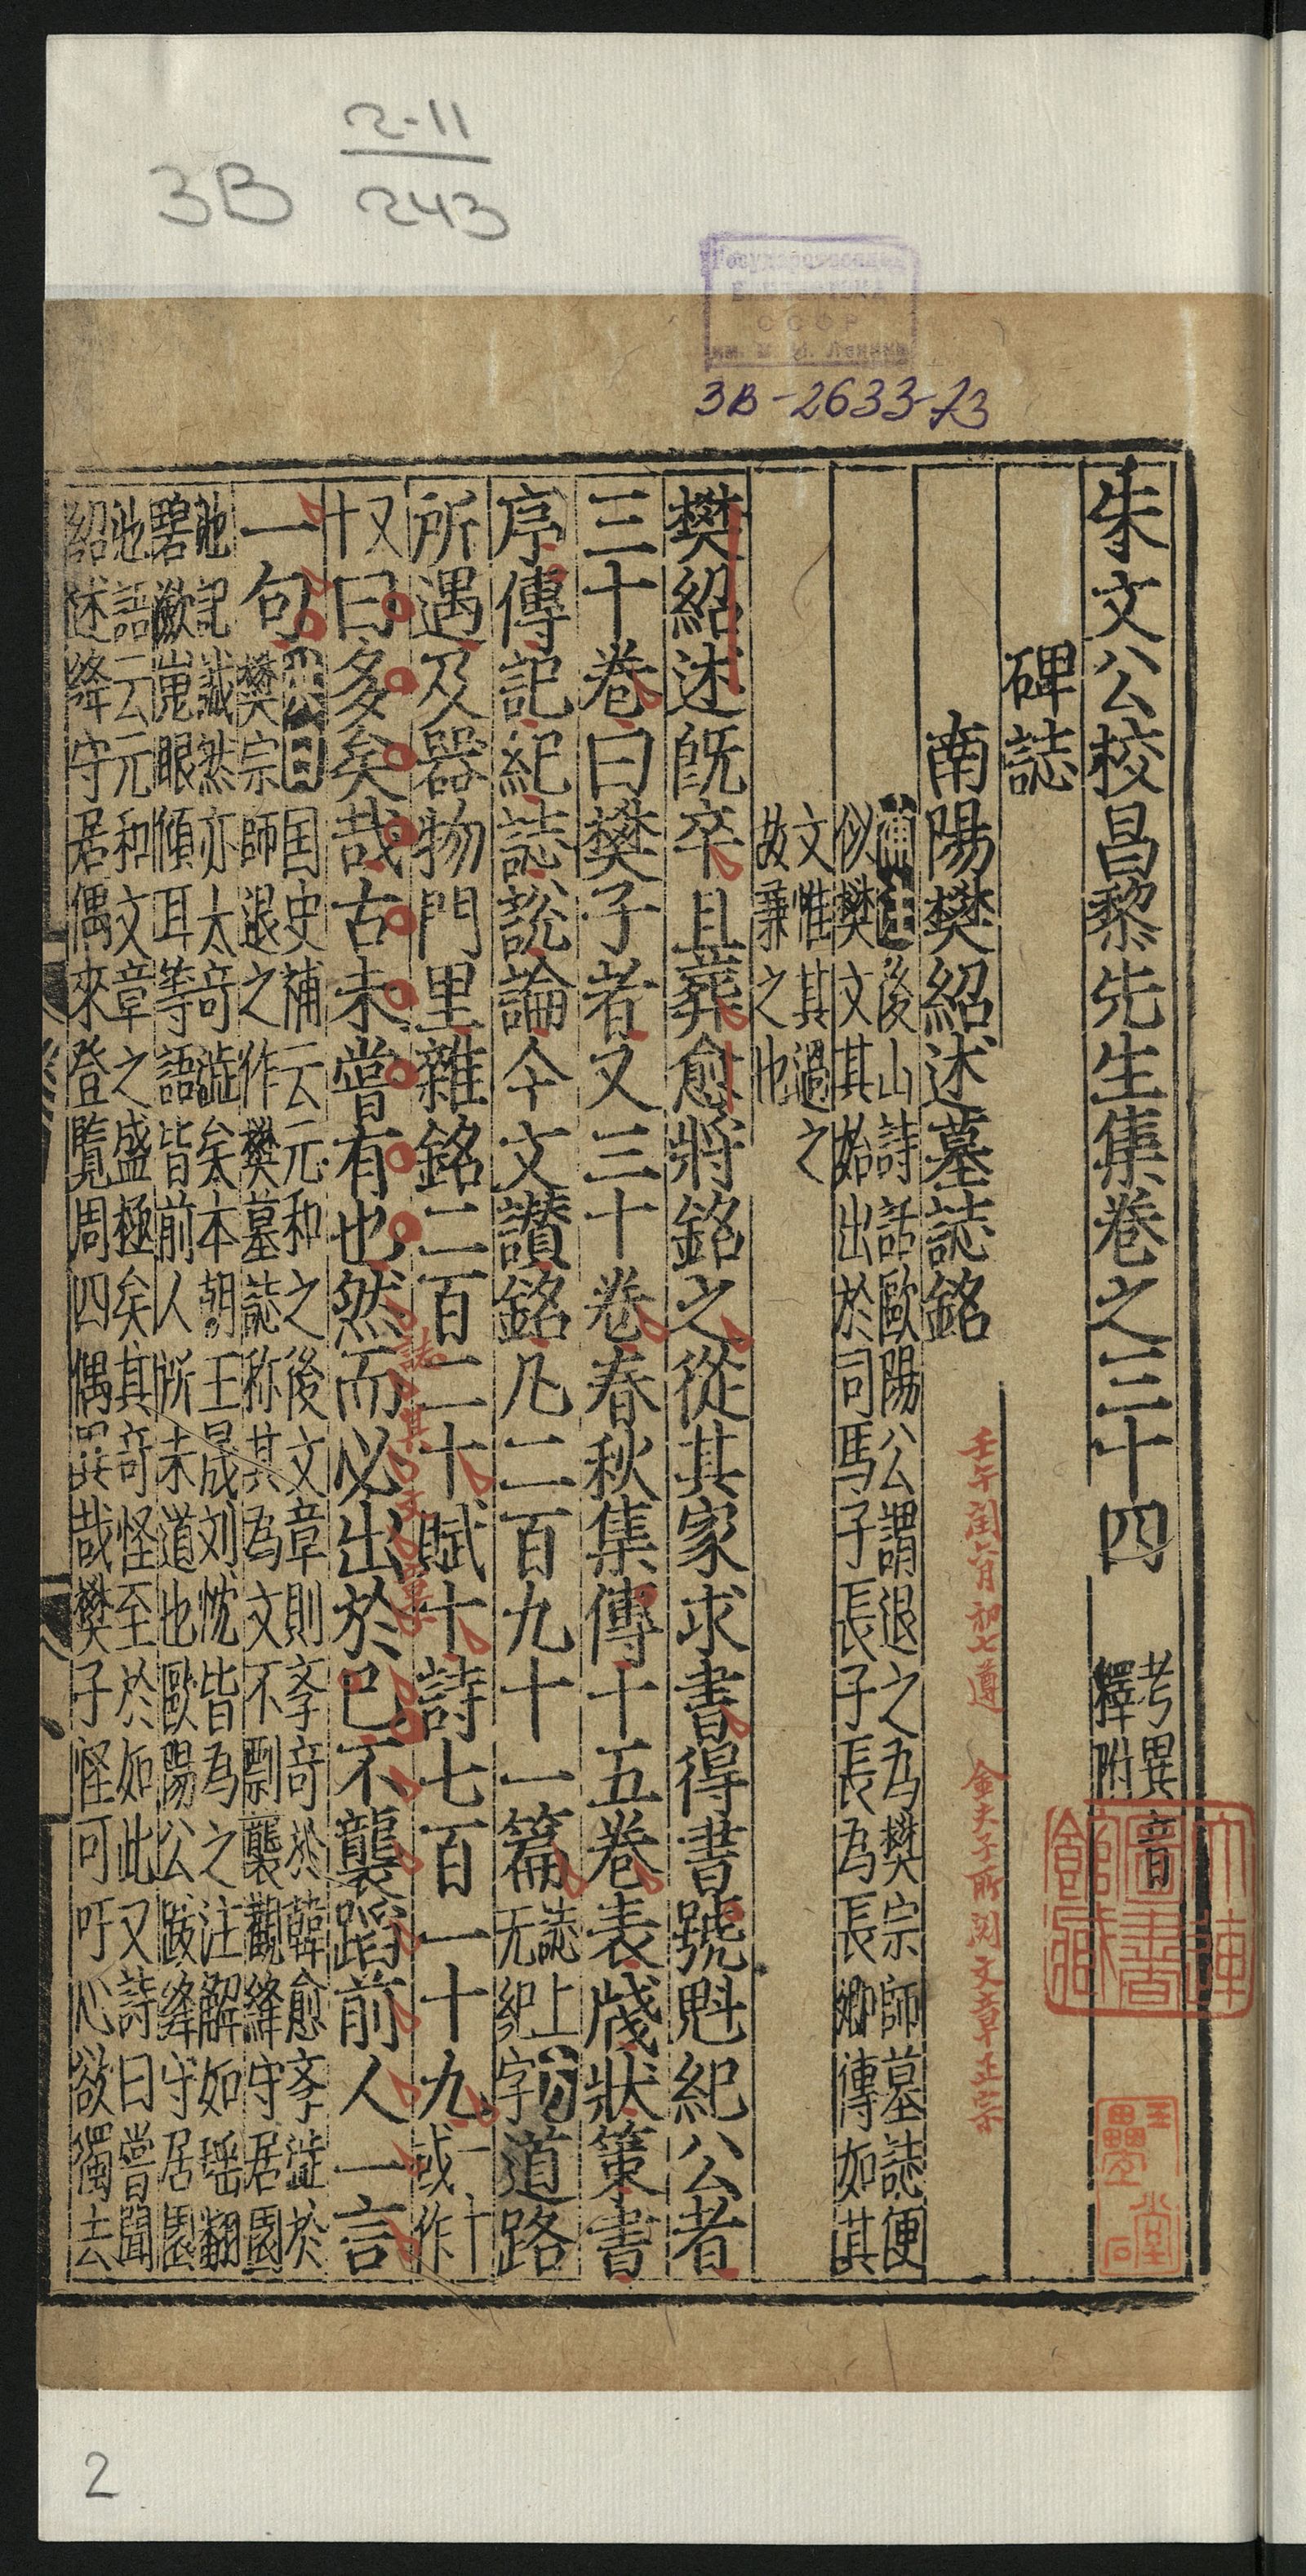 2-11
3B 243
Государственная
БИБЛИОТЕКА
СССР
им. В. И. Ленина
3B-2633-73
朱文公校昌黎先生集卷之三十四 考異音
釋附
碑誌
南陽樊紹述墓誌銘
壬午閏六月初七 金夫子所 文章正宗
補註後山詩話歐陽公謂退之為樊宗師墓誌便
似樊文其始出於司馬子長子長為長卿傳如其
文惟其過之
故兼之也
樊紹述旣卒且葬愈將銘之從其家求書得書號魁紀公者
三十卷曰樊子者又三十卷春秋集傳十五卷表牋狀策書
序傳記紀誌說論今文讚銘凡二百九十一篇誌上
无紀字道路
所遇及器物門里雜銘二百二十賦十詩七百一十九一十
或作
十又曰多矣哉古未嘗有也然而必出於己不襲蹈前人一言
一句 国史補云元和之後文章則斈竒於韓愈斈澁於
樊宗師退之作樊墓誌称其為文不剽襲觀絳守居園
池記誠然亦太竒澁矣本朝王晟刘忱皆為之注解如瑶翻
碧瀲嵬眼傾耳等語皆前人所未道也歐陽公跋絳守居園
池語云元和文章之盛極矣其竒怪至於如此又詩曰嘗聞
紹述絳守居偶來登覧周四偶異哉樊子怪可吁心欲獨去
王
堂
大連
圖書
館藏
2